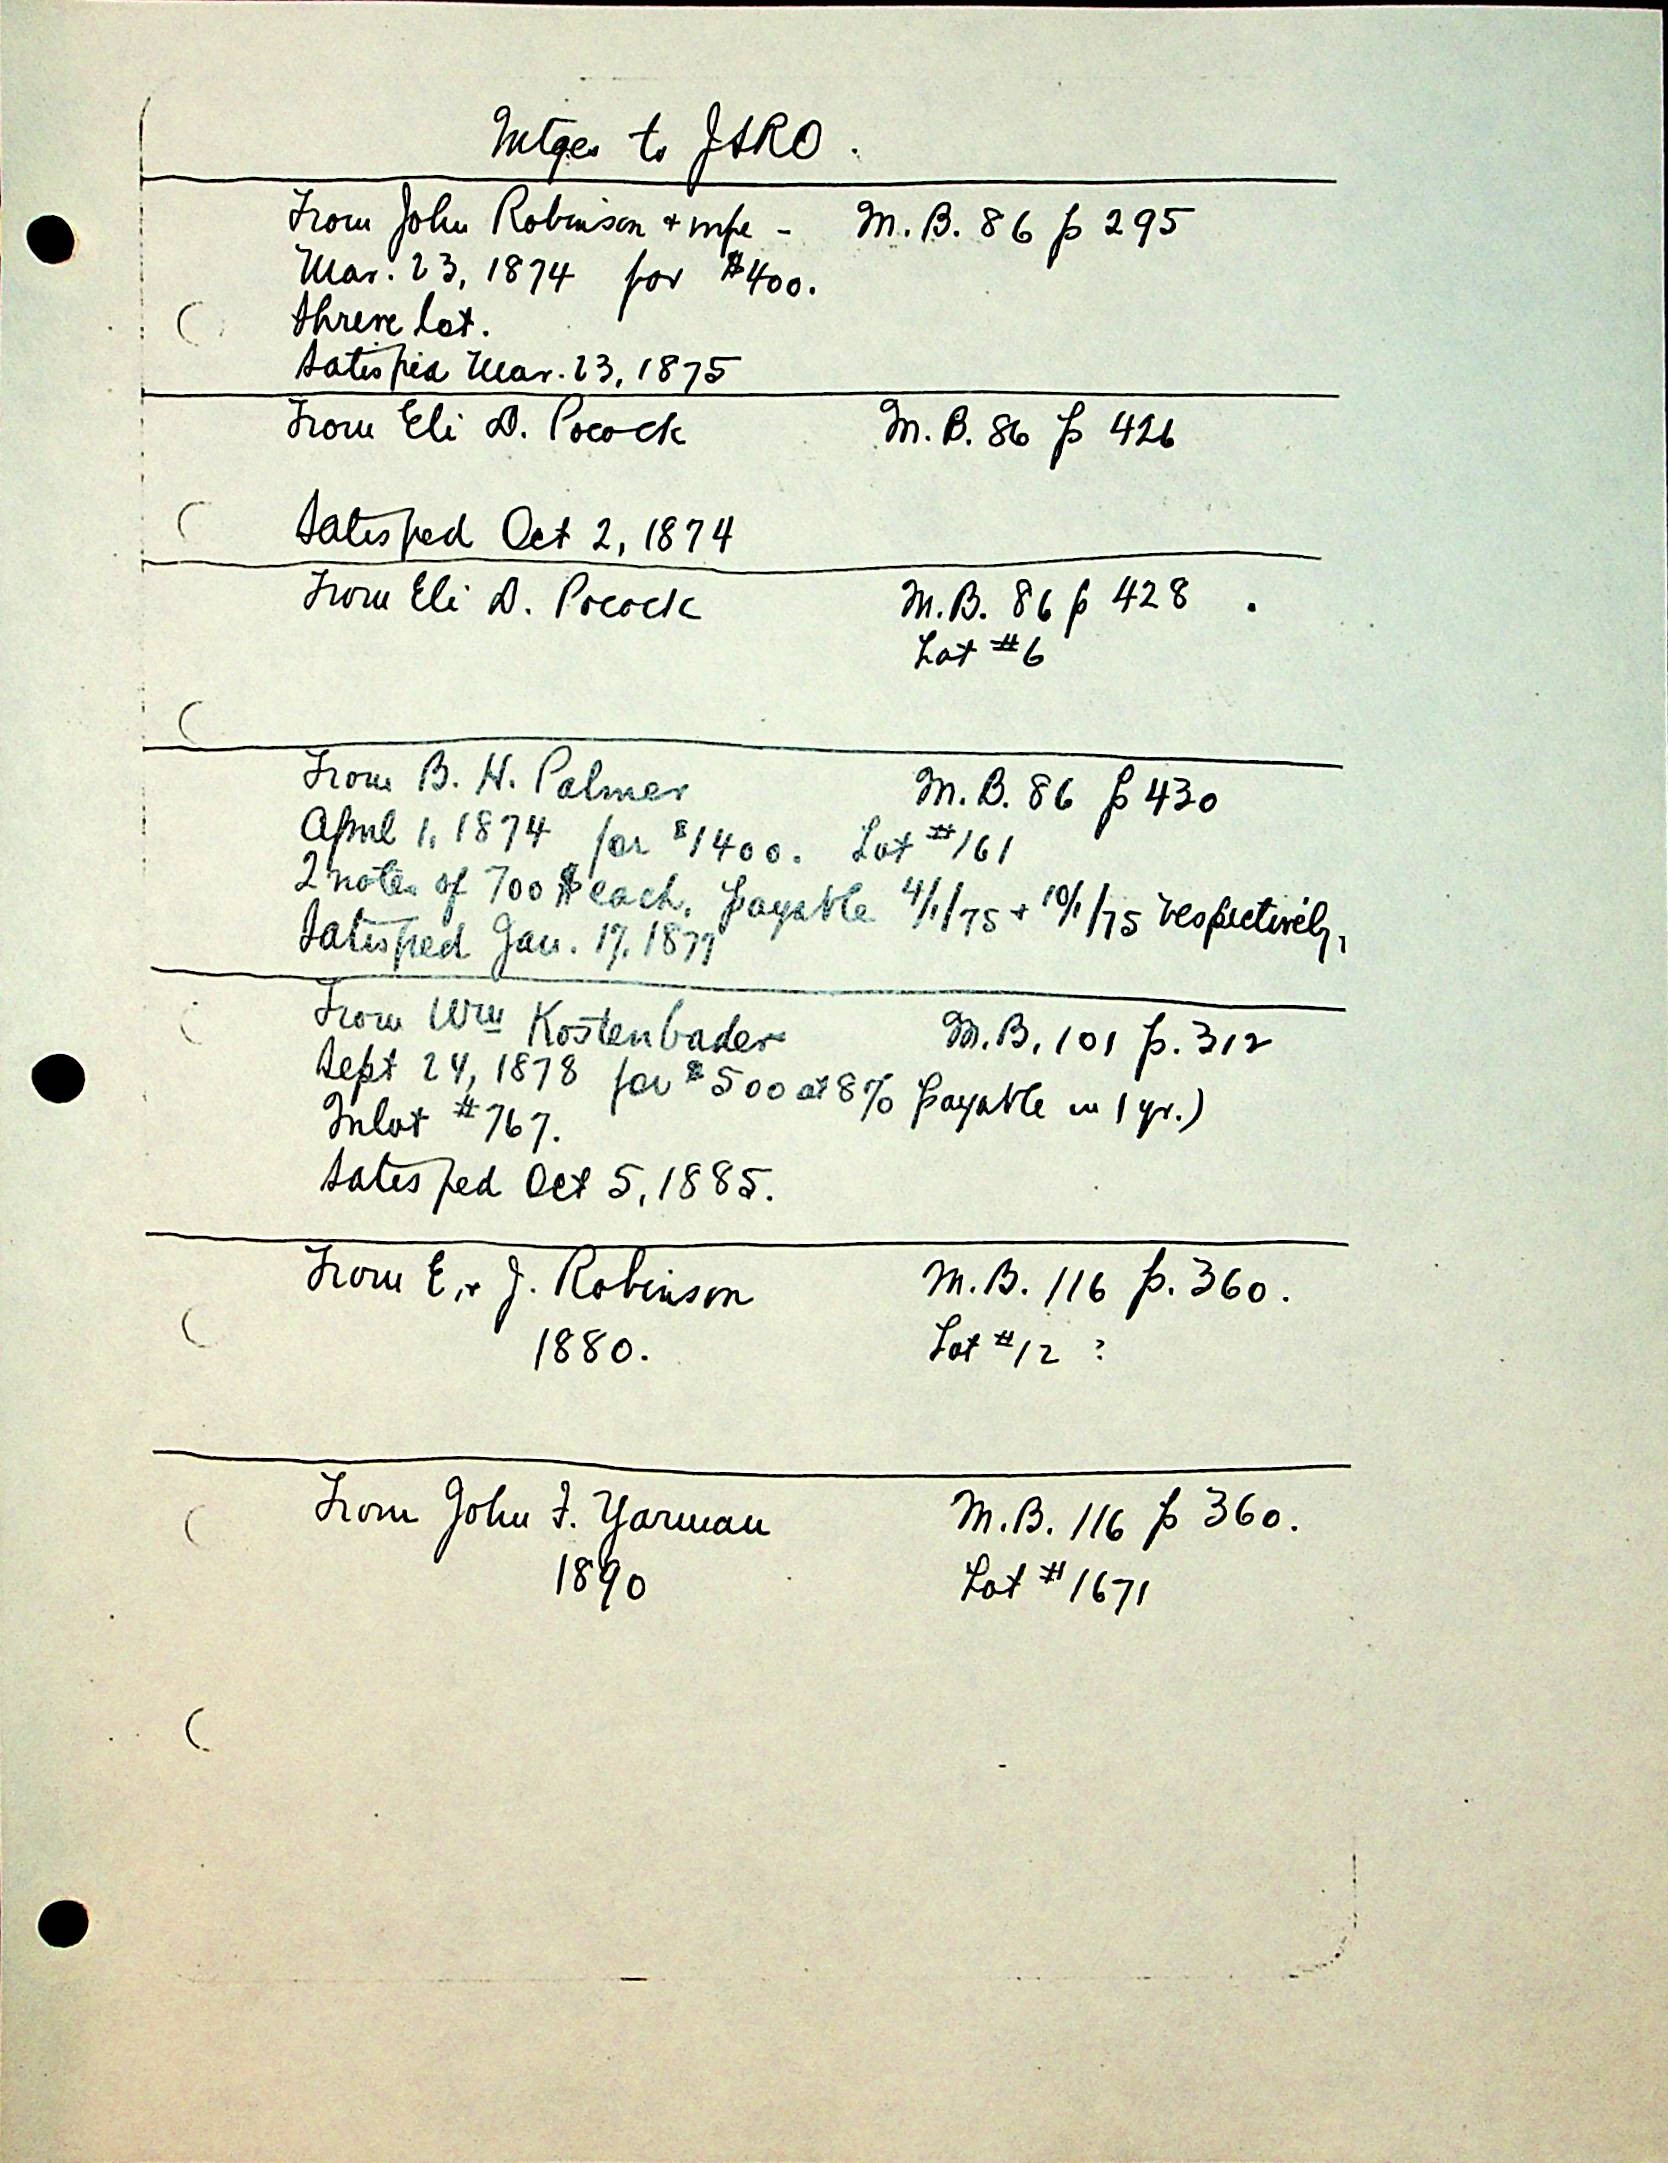 Mtges to JSRO.
From John Robinson + wife - M.B. 86 p 295
Mar. 23, 1874 for $400.
Shreve Lot.
Satisfied Mar. 23, 1875
From Eli D. Pocock M.B. 86 p 426
Satisfied Oct 2, 1874
From Eli D. Pocock M.B. 86 p 428 .
Lot #6
From B. H. Palmer M.B. 86 p 430
April 1, 1874 for $1400. Lot #161
2 notes of 700 $ each. payable 4/1/75 + 10/1/75 respectively,
Satisfied Jan. 17, 1877
From Wm Kostenbader M.B. 101 p. 312
Sept 24, 1878 for $500 at 8% payable in 1 yr.)
Inlot #767.
Satisfied Oct 5, 1885.
From E. + J. Robinson M.B. 116 p. 360.
1880. Lot #12 ?
From John F. Yarman M.B. 116 p 360.
1890 Lot #1671